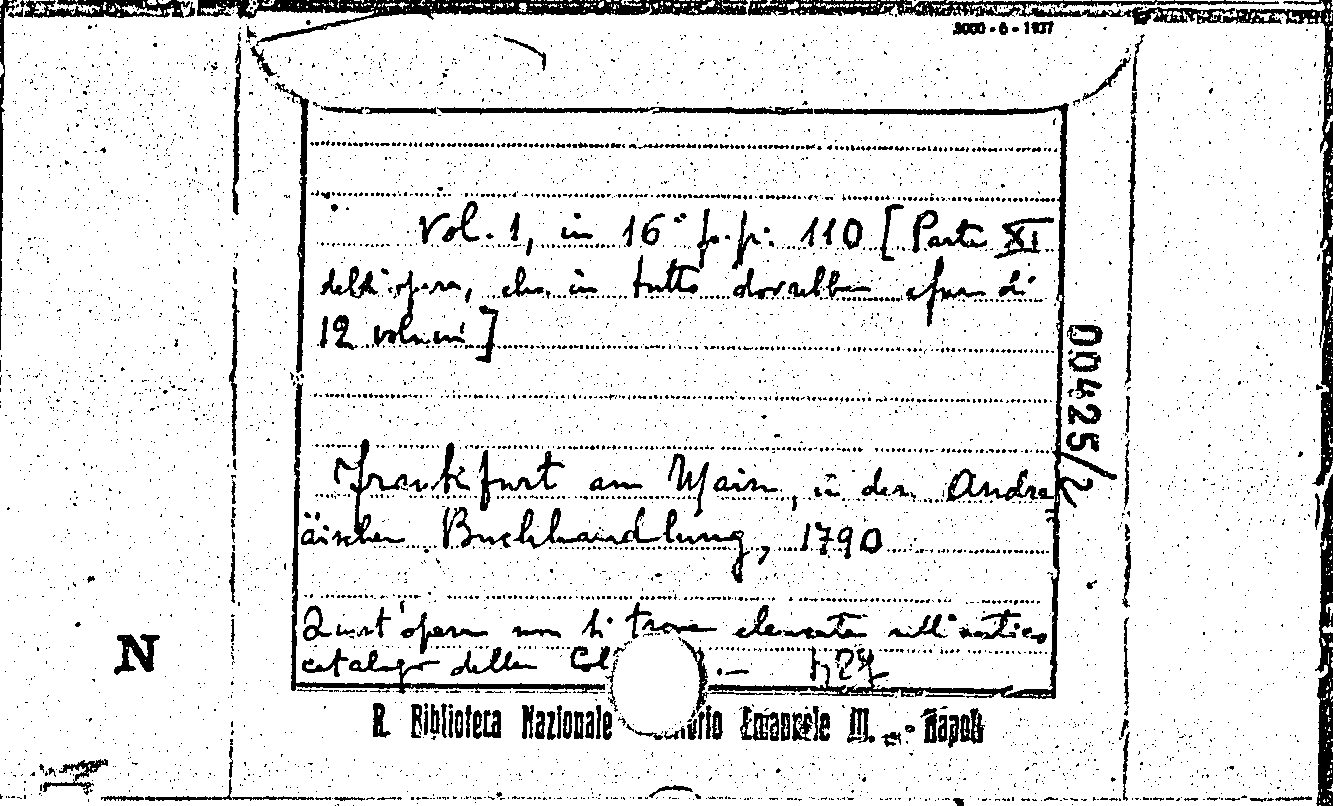 3000 - 6 - 1937
Vol. 1, in 16° pp. 110 [Parte XI
dell'opera, che in tutto dovrebbe essere di
12 volumi]
Frankfurt am Main, in der Andre
äischen Buchhandlung, 1790
Quest'opera non si trova elencata nell'antico
catalogo della Col .—
R. Biblioteca Nazionale Emanuele III. - Napoli
00425/2
N